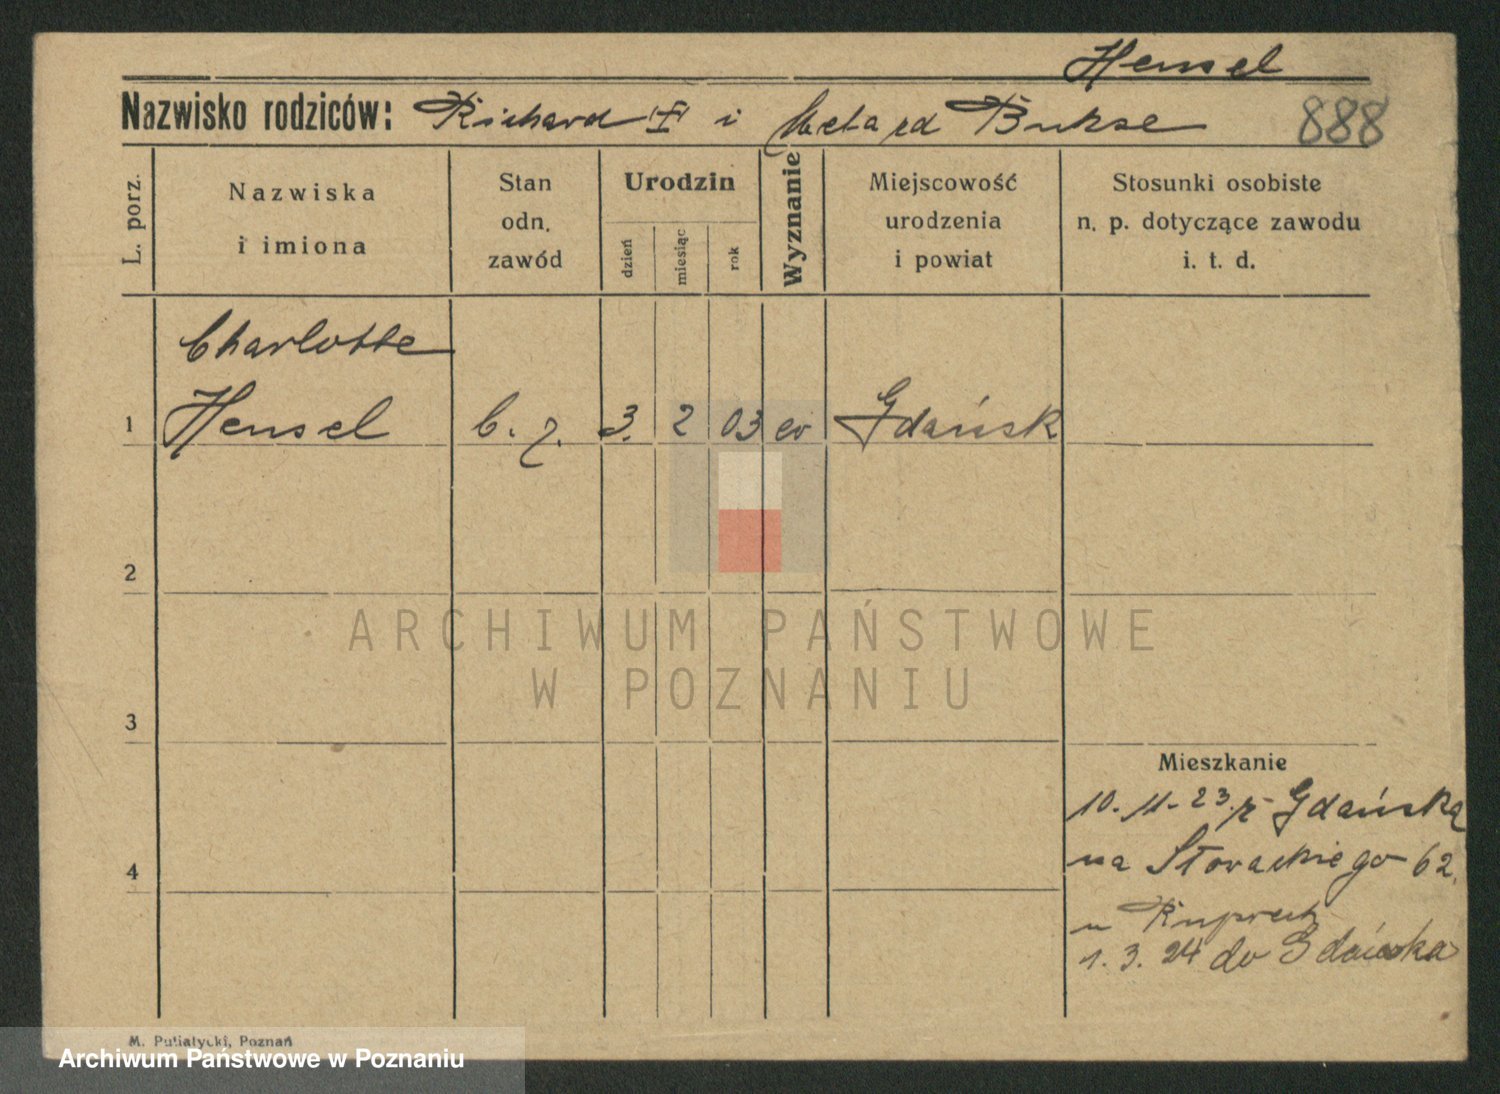 Hensel
Nazwisko rodziców: Richard i Meta zd Bukse
888
L. porz.
Nazwiska
i imiona
Stan
odn.
zawód
Urodzin
dzień
miesiąc
rok
Wyznanie
Miejscowość
urodzenia
i powiat
Stosunki osobiste
n. p. dotyczące zawodu
i. t. d.
Charlotte
1 Hensel b. z. 3. 2 03 ev Gdańsk
2
ARCHIWUM PAŃSTWOWE
W POZNANIU
3
Mieszkanie
10. 11. 23. z Gdańska
na Słowackiego 62.
4
u Ruprecht
1. 3. 24 do Gdańska
M. Putiatycki, Poznań
Archiwum Państwowe w Poznaniu